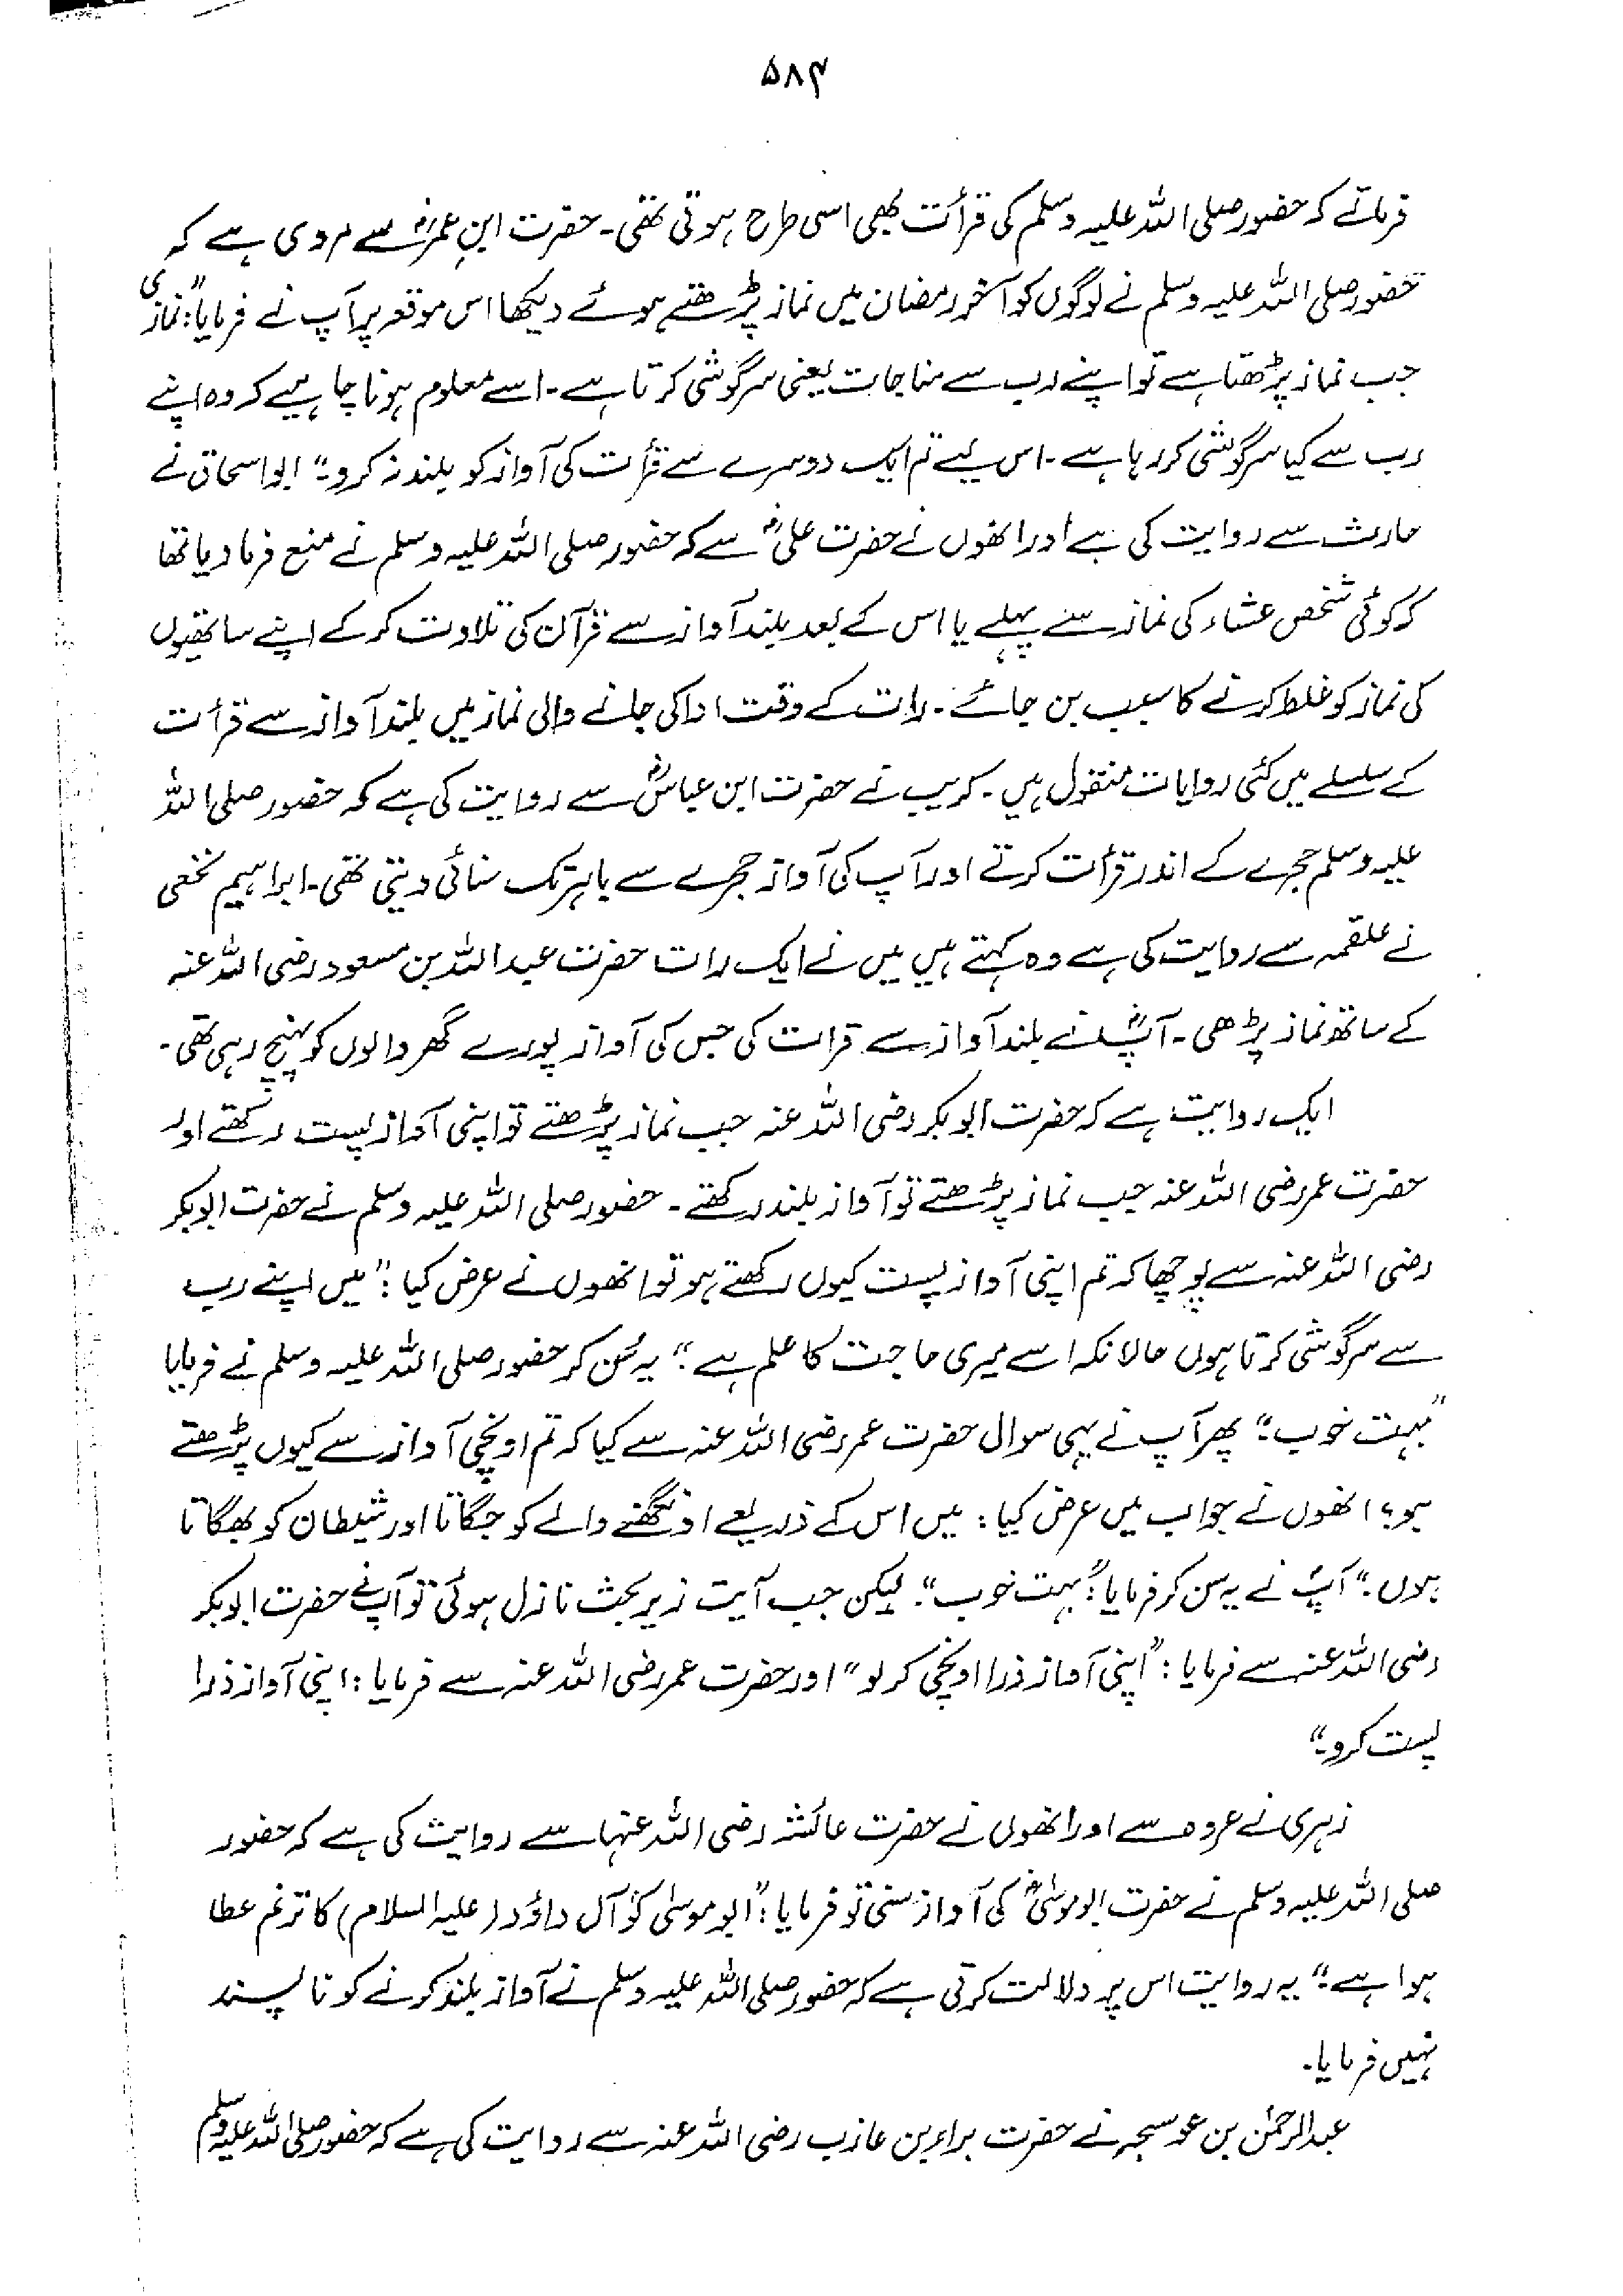 ۵۸۴
فرماتے کہ حضور صلی اللہ علیہ وسلم کی قرأت بھی اسی طرح ہوتی تھی۔ حضرت ابنِ عمرؓ سے مروی ہے کہ
حضور صلی اللہ علیہ وسلم نے لوگوں کو آخر رمضان میں نماز پڑھتے ہوئے دیکھا اس موقعہ پر آپ نے فرمایا: "نمازی
جب نماز پڑھتا ہے تو اپنے رب سے مناجات یعنی سرگوشی کرتا ہے۔ اسے معلوم ہونا چاہیے کہ وہ اپنے
رب سے کیا سرگوشی کر رہا ہے۔ اس لیے تم ایک دوسرے سے قرأت کی آواز کو بلند نہ کرو۔" ابو اسحاق نے
حارث سے روایت کی ہے اور انھوں نے حضرت علیؓ سے کہ حضور صلی اللہ علیہ وسلم نے منع فرما دیا تھا
کہ کوئی شخص عشاء کی نماز سے پہلے یا اس کے بعد بلند آواز سے قرآن کی تلاوت کر کے اپنے ساتھیوں
کی نماز کو غلط کرنے کا سبب بن جائے۔ رات کے وقت ادا کی جانے والی نماز میں بلند آواز سے قرأت
کے سلسلے میں کئی روایات منقول ہیں۔ کریب نے حضرت ابن عباسؓ سے روایت کی ہے کہ حضور صلی اللہ
علیہ وسلم حجرے کے اندر قرأت کرتے اور آپ کی آواز حجرے سے باہر تک سنائی دیتی تھی۔ ابراہیم نخعی
نے علقمہ سے روایت کی ہے وہ کہتے ہیں میں نے ایک رات حضرت عبداللہ بن مسعود رضی اللہ عنہ
کے ساتھ نماز پڑھی۔ آپؓ نے بلند آواز سے قرات کی جس کی آواز پورے گھر والوں کو پہنچ رہی تھی۔
ایک روایت ہے کہ حضرت ابوبکر رضی اللہ عنہ جب نماز پڑھتے تو اپنی آواز پست رکھتے اور
حضرت عمر رضی اللہ عنہ جب نماز پڑھتے تو آواز بلند رکھتے۔ حضور صلی اللہ علیہ وسلم نے حضرت ابوبکر
رضی اللہ عنہ سے پوچھا کہ تم اپنی آواز پست کیوں رکھتے ہو تو انھوں نے عرض کیا: "میں اپنے رب
سے سرگوشی کرتا ہوں حالانکہ اسے میری حاجت کا علم ہے۔" یہ سُن کر حضور صلی اللہ علیہ وسلم نے فرمایا
"بہت خوب"۔ پھر آپ نے یہی سوال حضرت عمر رضی اللہ عنہ سے کیا کہ تم اونچی آواز سے کیوں پڑھتے
ہو؟ انھوں نے جواب میں عرض کیا: میں اس کے ذریعے اونگھنے والے کو جگاتا اور شیطان کو بھگاتا
ہوں۔" آپؐ نے یہ سن کر فرمایا: "بہت خوب"۔ لیکن جب آیت زیر بحث نازل ہوئی تو آپ نے حضرت ابوبکر
رضی اللہ عنہ سے فرمایا: "اپنی آواز ذرا اونچی کر لو" اور حضرت عمر رضی اللہ عنہ سے فرمایا: اپنی آواز ذرا
پست کرو۔"
زہری نے عروہ سے اور انھوں نے حضرت عائشہ رضی اللہ عنہا سے روایت کی ہے کہ حضور
صلی اللہ علیہ وسلم نے حضرت ابو موسیٰؓ کی آواز سنی تو فرمایا: "ابو موسیٰ کو آل داؤد (علیہ السلام) کا ترنم عطا
ہوا ہے۔" یہ روایت اس پر دلالت کرتی ہے کہ حضور صلی اللہ علیہ وسلم نے آواز بلند کرنے کو ناپسند
نہیں فرمایا۔
عبدالرحمٰن بن عوسجہ نے حضرت براء بن عازب رضی اللہ عنہ سے روایت کی ہے کہ حضور صلی اللہ علیہ وسلم